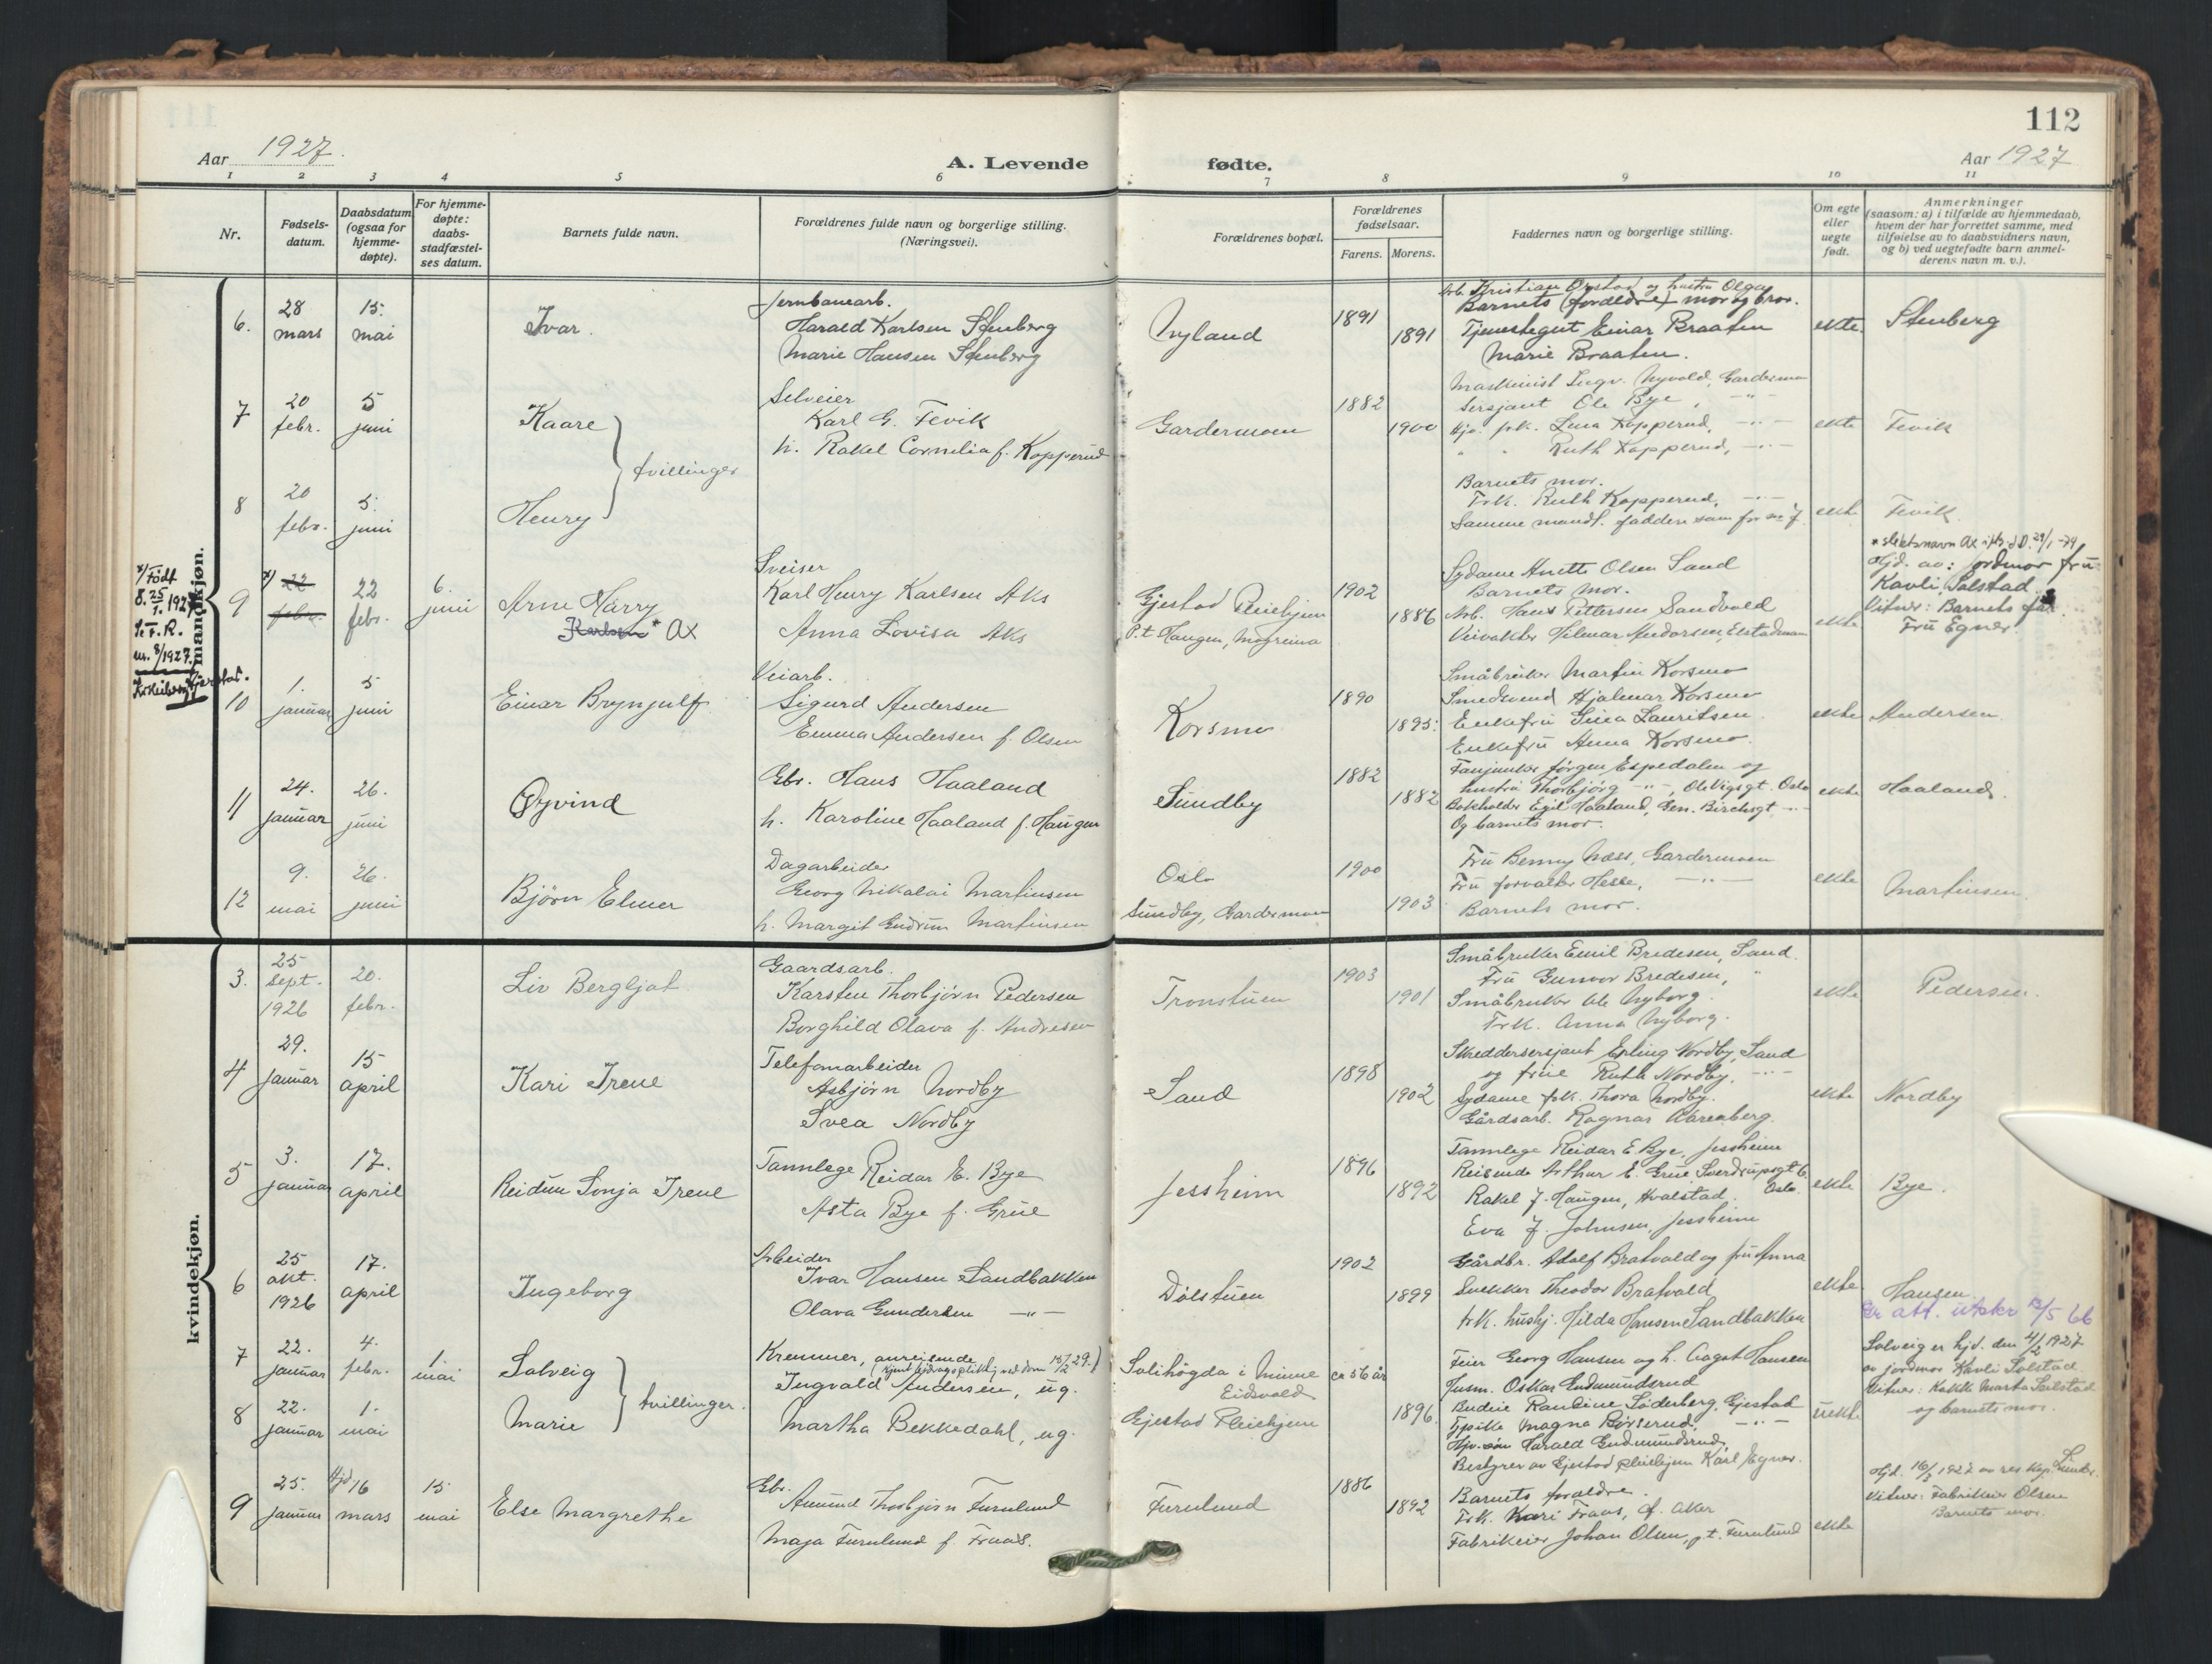 112
Aar 1927.
A. Levende
fødte.
Aar 1927
1 2 3 4 5 6 7 8 9 10 11
Nr.
Fødsels-
datum.
Daabsdatum
(ogsaa for
hjemme-
døpte).
For hjemme-
døpte:
daabs-
stadfæstel-
ses datum.
Barnets fulde navn.
Forældrenes fulde navn og borgerlige stilling.
(Næringsvei).
Forældrenes bopæl.
Forældrenes
fødselsaar.
Farens. Morens.
Faddernes navn og borgerlige stilling.
Om egte
eller
uegte
født.
Anmerkninger
(saasom: a) i tilfælde av hjemmedaab,
hvem der har forrettet samme, med
tilføielse av to daabsvidners navn,
og b) ved uegtefødte barn anmel-
derens navn m. v.).
mandkjøn.
6.
28
mars
15.
mai
Ivar.
Jernbanearb.
Harald Karlsen Stenberg
Marie Hansen Stenberg
Nyland
1891
1891
Arb. Kristian Ørstad og hustru Olga
Barnets (foreldre) mor og bror.
Tjenestegut Einar Braaten
Marie Braaten.
ekte
Stenberg
7
20
febr.
5
juni
Kaare
tvillinger
Selveier
Karl G. Fevik
h. Rakel Cornelia f. Kopperud
Gardermoen
1882
1900
Maskinist Ingv. Nyvold, Gardermo
Sersjant Ole Bye, -"-
Hjv. frk. Lina Kopperud, -"-
" " Ruth Kopperud, -"-
ekte
Fevik
8
20
febr.
5.
juni
Henry
Barnets mor.
Frk. Ruth Kopperud, -"-
Samme mandl. faddere som for nr 7.
ekte
Fevik
x/ Født
8. 25/1. 1927
Se F. R.
nr. 8/1927.
9
x) 22
febr.
22
febr.
6.
juni
Arne Harry
Karlsen * Ax
Sveiser
Karl Henry Karlsen Aks
Anna Lovisa Aks
Gjestad Pleiehjem
P.t. Haugen, Mogreina
1902
1886
Sydame Anette Olsen Sand
Barnets mor.
Arb. Hans Pettersen Sandvold
Veivakter Hilmar Andersen, Elstadmoen
ekte
* slektsnavn Ax iflg. J.D. 29/1-74
Hjd. av: jordmor fru
Kavli Solstad
Vitner: Barnets far
Fru Egner.
10
1.
januar
5
juni
Einar Brynjulf
Veiarb.
Sigurd Andersen
Emma Andersen f. Olsen
Korsmo
1890
1895.
Småbruker Martin Korsmo
Smedsvend Hjalmar Korsmo
Enkefru Gina Lauritsen
Enkefru Anna Korsmo.
ekte
Andersen
11
24.
januar
26.
juni
Øyvind
Gbr. Hans Haaland
h. Karoline Haaland f. Haugen
Sundby
1882
1882
Fanjunker Jørgen Espedalen og
hustru Thorbjørg -"-, Ole Vigsgt. Oslo
Bokholder Egil Haaland, Gen. Birchsgt. -"-
Og barnets mor.
ekte
Haaland.
12
9.
mai
26.
juni
Bjørn Elmer
Dagarbeider
Georg Nikolai Martinsen
h. Margit Gudrun Martinsen
Oslo
Sundby, Gardermoen
1900
1903
Fru Benny Næss, Gardermoen
Fru forvalter Hesle, -"-
Barnets mor.
ekte
Martinsen.
kvindekjøn.
3.
25
Sept.
1926
20.
febr.
Liv Bergljot
Gaardsarb.
Karsten Thorbjørn Pedersen
Borghild Olava f. Andresen
Tronstuen
1903
1901
Småbruker Emil Bredesen, Sand.
Fru Gunvor Bredesen, "
Småbruker Ole Nyborg.
Frk. Anna Nyborg.
ekte
Pedersen.
4
29.
januar
15
april
Kari Irene
Telefonarbeider
Asbjørn Nordby
Svea Nordby
Sand
1898
1902
Skreddersersjant Erling Nordby, Sand
og frue Ruth Nordby, -"-
Sydame frk. Thora Nordby.
Gårdsarb. Ragnar Aarenberg.
ekte
Nordby
5
3.
januar
17.
april
Reidun Sonja Irene
Tannlege Reidar E. Bye
Asta Bye f. Grue
Jessheim
1896
1892
Tannlege Reidar E. Bye, Jessheim
Reisende Arthur E. Grue, Sverdrupsgt 6
Oslo.
Rakel J. Haugen, Hvalstad.
Eva J. Johnsen, Jessheim
ekte
Bye.
6
25
okt.
1926
17.
april
Ingeborg
Arbeider
Ivar Hansen Sandbakken
Olava Gundersen -"-
Dølstuen
1902
1899
Gårdbr. Adolf Bratvold og fru Anna
Snekker Theodor Bratvold
frk. hushj. Hilda Hansen Sandbakken
ekte
Hansen.
Er att. utskr 12/5 66
7
22.
januar
4.
febr.
1.
mai
Solveig
tvillinger.
Kremmer, omreisende
(kjent bidragspliktig ved dom 10/12 29.)
Ingvald Andersen, ug.
Martha Bekkedahl, ug.
Solihøgda i Minne
Eidsvold
Gjestad Pleiehjem
ca 56 år
1896.
Feier Georg Hansen og h. Aagot Hansen
Jusm. Oskar Gudmundsrud
Budeie Pauline Söderberg, Gjestad
Tjpike Magna Börserud, -"-
Hjv. søn Harald Gudmundsrud,
Bestyrer av Gjestad pleiehjem Karl Egner.
uekte
Solveig er hjd. den 4/2 1927
av jordmor Kavli Solstad
Vitner: Kokke Marta Solstad
og barnets mor.
8
22.
januar
1.
mai
Marie
9
25.
januar
Hjd 16
mars
15
mai
Else Margrethe
Gbr.
Amund Thorbjørn Furulund
Maja Furulund f. Fraas.
Furulund
1886
1892
Barnets foreldre.
Frk. Kari Fraas, Ø. Aker
Fabrikeier Johan Olsen, p.t. Furulund
ekte
Hjd. 16/3 1927 av res. kap. Lunde.
Vitner: Fabrikeier Olsen
Barnets mor.